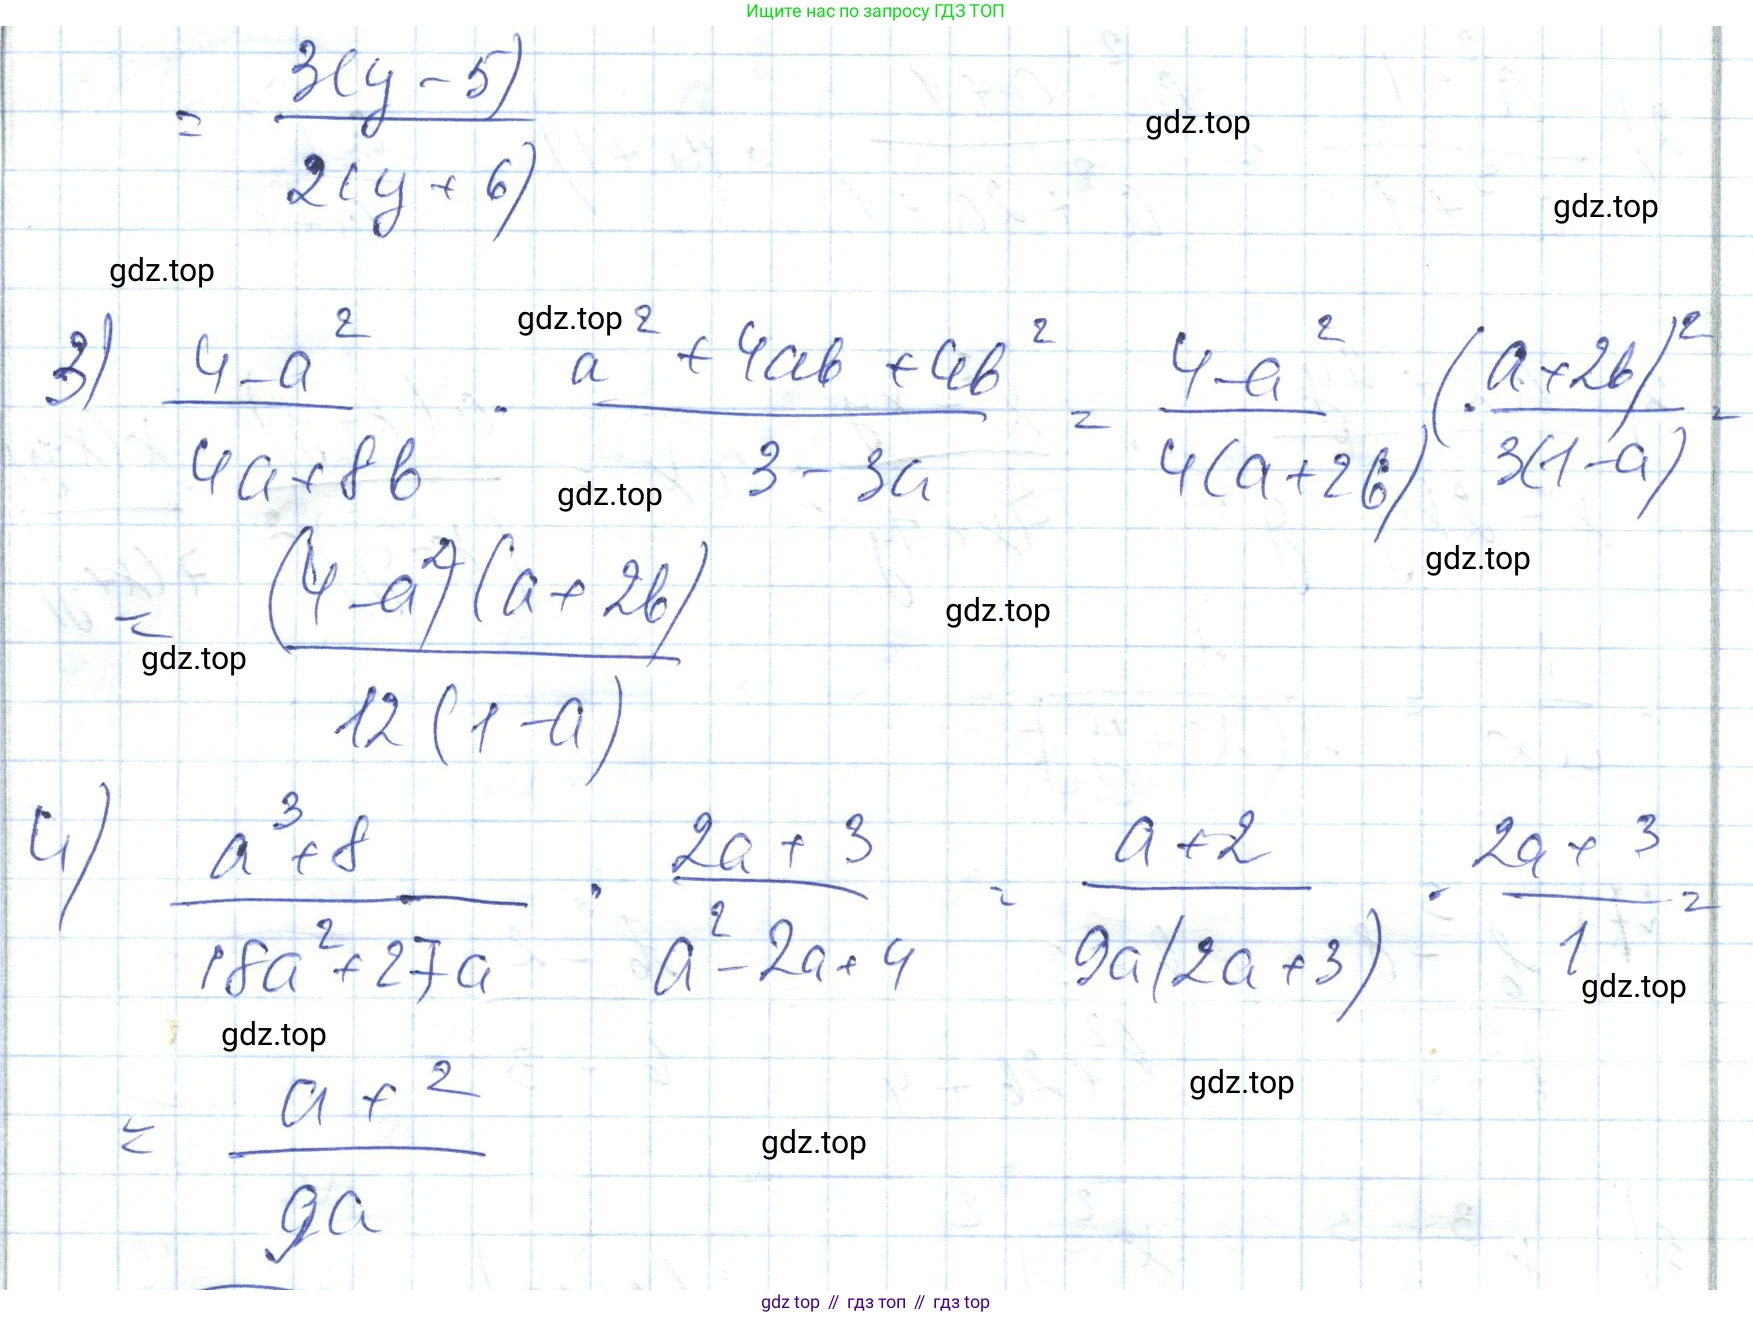 Ищите нас по запросу ГДЗ ТОП
= 3(y - 5) / 2(y + 6)
gdz.top
gdz.top
gdz.top
gdz.top
3) (4 - a²) / (4a + 8b) · (a² + 4ab + 4b²) / (3 - 3a) = (4 - a²) / 4(a + 2b) · (a + 2b)² / 3(1 - a) =
gdz.top
gdz.top
= (4 - a²)(a + 2b) / 12(1 - a)
gdz.top
gdz.top
4) (a³ + 8) / (18a² + 27a) · (2a + 3) / (a² - 2a + 4) = (a + 2) / 9a(2a + 3) · (2a + 3) / 1 =
gdz.top
gdz.top
= (a + 2) / 9a
gdz.top
gdz.top
gdz top // гдз топ // gdz top